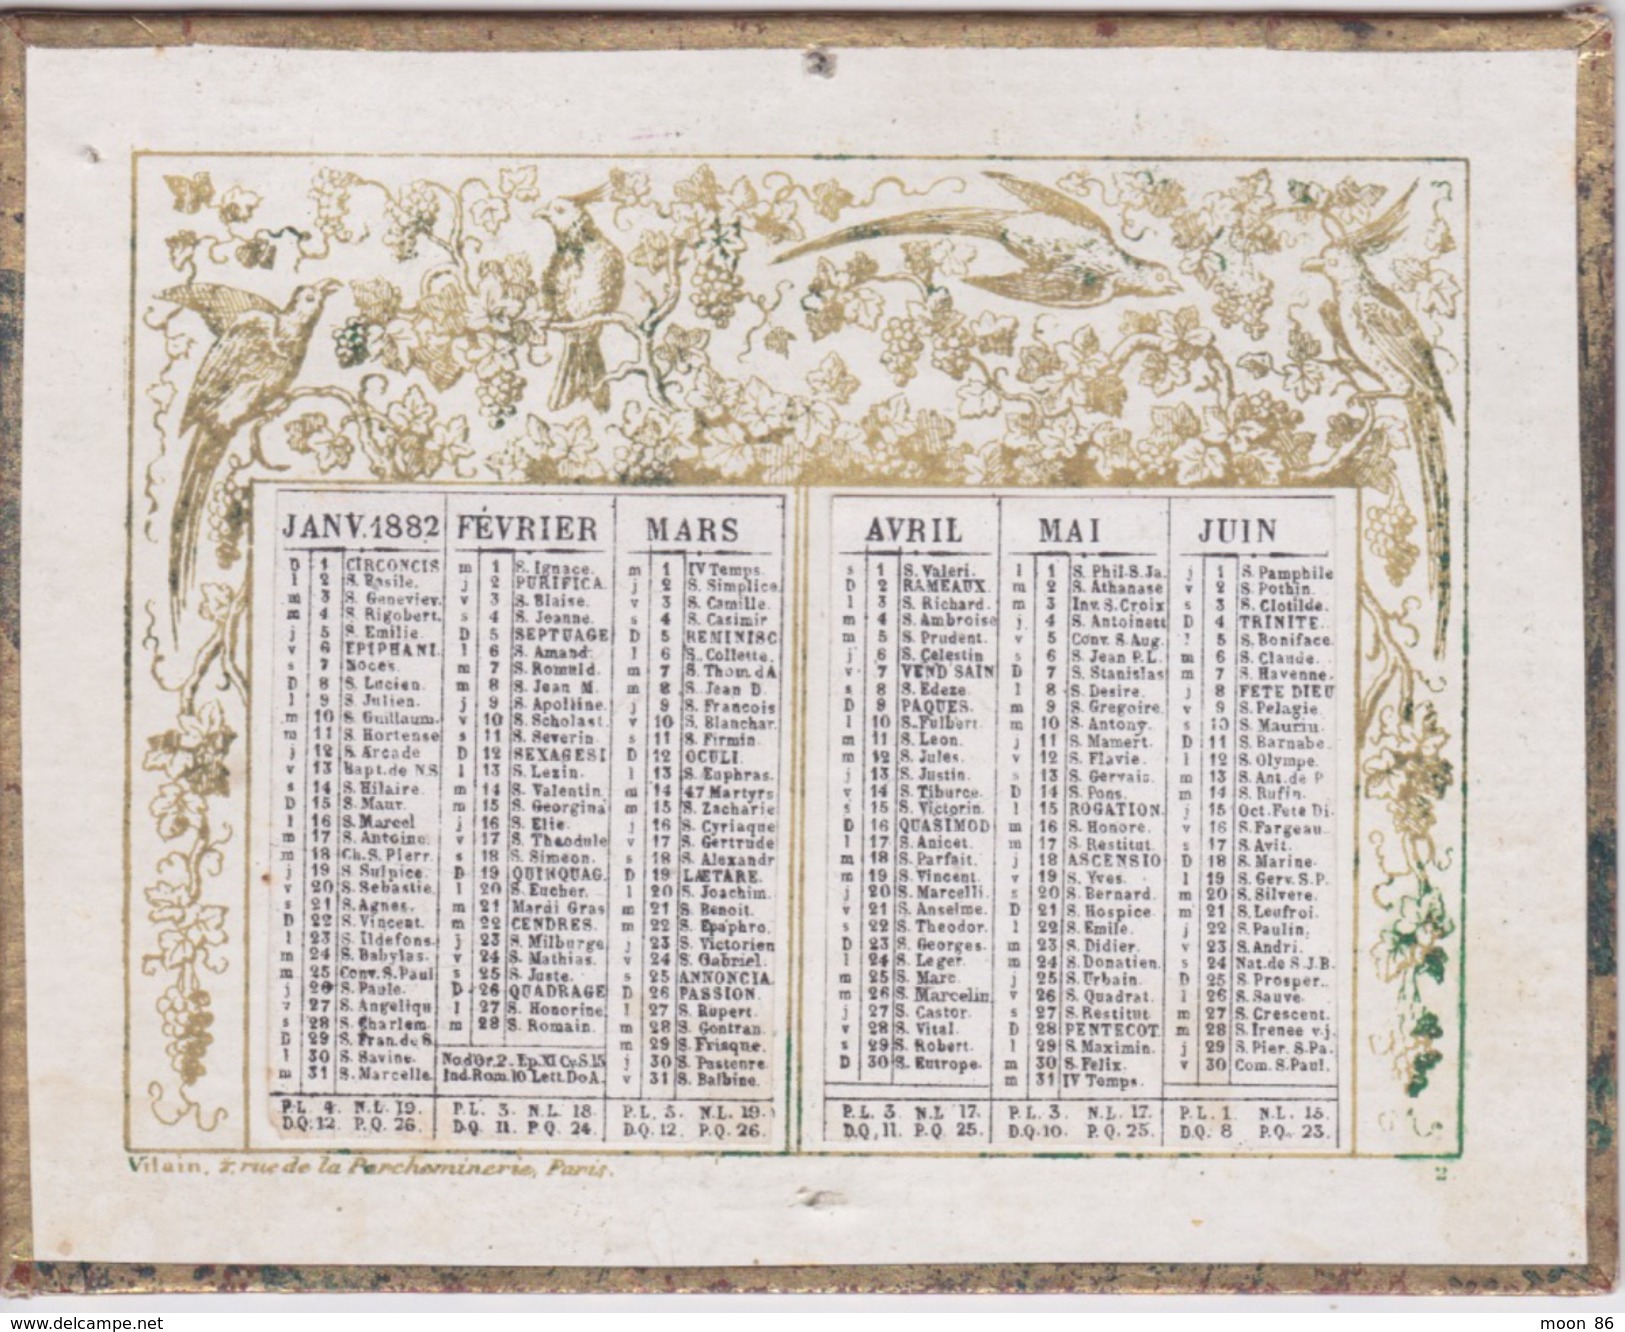 JANV. 1882
D 1 CIRCONCIS
l 2 S. Basile.
m 3 S. Geneviev.
m 4 S. Rigobert.
j 5 S. Emilie.
v 6 EPIPHANI.
s 7 Noces.
D 8 S. Lucien.
l 9 S. Julien.
m 10 S. Guillaum.
m 11 S. Hortense
j 12 S. Arcade
v 13 Bapt. de N.S
s 14 S. Hilaire.
D 15 S. Maur.
l 16 S. Marcel
m 17 S. Antoine.
m 18 Ch. S. Pierr.
j 19 S. Sulpice.
v 20 S. Sebastie.
s 21 S. Agnes.
D 22 S. Vincent.
l 23 S. Ildefons.
m 24 S. Babylas.
m 25 Conv. S. Paul
j 26 S. Paule.
v 27 S. Angeliqu
s 28 S. Charlem
D 29 S. Fran. de S.
l 30 S. Savine.
m 31 S. Marcelle.
P.L. 4. N.L. 19.
D.Q. 12. P.Q. 26.
FÉVRIER
m 1 S. Ignace.
j 2 PURIFICA.
v 3 S. Blaise.
s 4 S. Jeanne.
D 5 SEPTUAGE
l 6 S. Amand.
m 7 S. Romuld.
m 8 S. Jean M.
j 9 S. Apolline.
v 10 S. Scholast.
s 11 S. Severin
D 12 SEXAGESI
l 13 S. Lezin.
m 14 S. Valentin.
m 15 S. Georgina
j 16 S. Elie.
v 17 S. Theodule
s 18 S. Simeon.
D 19 QUINQUAG.
l 20 S. Eucher.
m 21 Mardi Gras
m 22 CENDRES.
j 23 S. Milburge
v 24 S. Mathias.
s 25 S. Juste.
D 26 QUADRAGE
l 27 S. Honorine
m 28 S. Romain.
No. d'Or. 2. Ep. XI Cy. S. 15
Ind. Rom. 10 Lett. Do A.
P.L. 3. N.L. 18.
D.Q. 11. P.Q. 24.
MARS
m 1 IV Temps.
j 2 S. Simplice
v 3 S. Camille.
s 4 S. Casimir
D 5 REMINISC
l 6 S. Collette.
m 7 S. Thom. d A
m 8 S. Jean D.
j 9 S. Francois
v 10 S. Blanchar.
s 11 S. Firmin.
D 12 OCULI.
l 13 S. Euphras.
m 14 47 Martyrs
m 15 S. Zacharie
j 16 S. Cyriaque
v 17 S. Gertrude
s 18 S. Alexandr
D 19 LÆTARE.
l 20 S. Joachim.
m 21 S. Benoit.
m 22 S. Epaphro.
j 23 S. Victorien
v 24 S. Gabriel.
s 25 ANNONCIA
D 26 PASSION.
l 27 S. Rupert.
m 28 S. Gontran.
m 29 S. Frisque.
j 30 S. Pastenre
v 31 S. Balbine.
P.L. 5. N.L. 19.
D.Q. 12. P.Q. 26.
AVRIL
s 1 S. Valeri.
D 2 RAMEAUX.
l 3 S. Richard.
m 4 S. Ambroise
m 5 S. Prudent.
j 6 S. Celestin
v 7 VEND SAIN
s 8 S. Edeze.
D 9 PAQUES.
l 10 S. Fulbert.
m 11 S. Leon.
m 12 S. Jules.
j 13 S. Justin.
v 14 S. Tiburce.
s 15 S. Victorin.
D 16 QUASIMOD
l 17 S. Anicet.
m 18 S. Parfait.
m 19 S. Vincent.
j 20 S. Marcelli.
v 21 S. Anselme.
s 22 S. Theodor.
D 23 S. Georges.
l 24 S. Leger.
m 25 S. Marc.
m 26 S. Marcelin.
j 27 S. Castor.
v 28 S. Vital.
s 29 S. Robert.
D 30 S. Eutrope.
P.L. 3. N.L 17.
D.Q. 11. P.Q. 25.
MAI
l 1 S. Phil. S. Ja.
m 2 S. Athanase
m 3 Inv. S. Croix
j 4 S. Antoinett
v 5 Conv. S. Aug.
s 6 S. Jean P.L.
D 7 S. Stanislas
l 8 S. Desire.
m 9 S. Gregoire.
m 10 S. Antony.
j 11 S. Mamert.
v 12 S. Flavie.
s 13 S. Gervais.
D 14 S. Pons.
l 15 ROGATION.
m 16 S. Honore.
m 17 S. Restitut.
j 18 ASCENSIO
v 19 S. Yves.
s 20 S. Bernard.
D 21 S. Hospice.
l 22 S. Emile.
m 23 S. Didier.
m 24 S. Donatien.
j 25 S. Urbain.
v 26 S. Quadrat.
s 27 S. Restitut
D 28 PENTECOT.
l 29 S. Maximin.
m 30 S. Felix.
m 31 IV Temps.
P.L. 3. N.L. 17.
D.Q. 10. P.Q. 25.
JUIN
j 1 S. Pamphile
v 2 S. Pothin.
s 3 S. Clotilde.
D 4 TRINITE.
l 5 S. Boniface.
m 6 S. Claude.
m 7 S. Havenne.
j 8 FETE DIEU
v 9 S. Pelagie.
s 10 S. Maurin.
D 11 S. Barnabe.
l 12 S. Olympe.
m 13 S. Ant. de P
m 14 S. Rufin.
j 15 Oct. Fete Di.
v 16 S. Fargeau.
s 17 S. Avit.
D 18 S. Marine.
l 19 S. Gerv. S.P.
m 20 S. Silvere.
m 21 S. Leufroi.
j 22 S. Paulin.
v 23 S. Andri.
s 24 Nat. de S.J.B.
D 25 S. Prosper.
l 26 S. Sauve.
m 27 S. Crescent.
m 28 S. Irenee v.j.
j 29 S. Pier. S. Pa.
v 30 Com. S. Paul.
P.L. 1. N.L. 15.
D.Q. 8 P.Q. 23.
Vilain, 7, rue de la Parcheminerie, Paris.
2
www.delcampe.net
moon 86